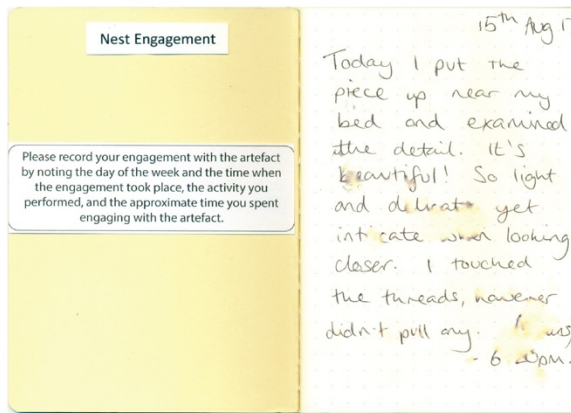 Nest Engagement
Please record your engagement with the artefact
by noting the day of the week and the time when
the engagement took place, the activity you
performed, and the approximate time you spent
engaging with the artefact.
15th Aug
Today I put the
piece up near my
bed and examined
the detail. It's
beautiful! So light
and delicate yet
intricate when looking
closer. I touched
the threads, however
didn't pull any.
- 6